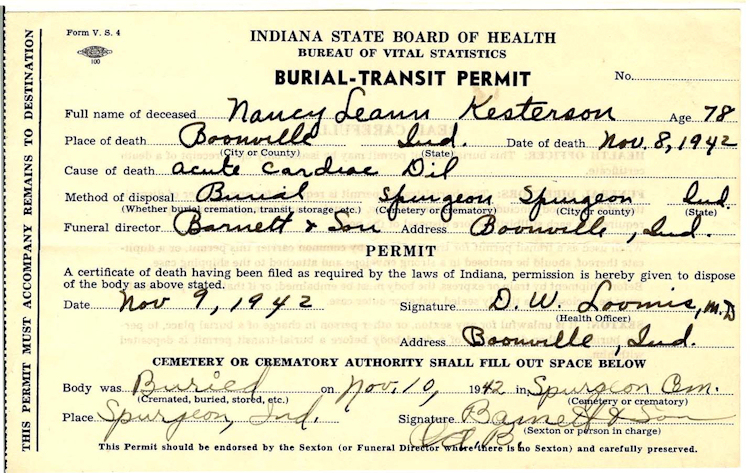 Form V. S. 4
100
INDIANA STATE BOARD OF HEALTH
BUREAU OF VITAL STATISTICS
BURIAL-TRANSIT PERMIT
No.
Full name of deceased Nancy Leann Kesterson Age 78
Place of death Boonville Ind. Date of death Nov. 8, 1942
(City or County) (State)
Cause of death acute cardiac Dil
Method of disposal Burial Spurgeon Spurgeon Ind.
(Whether burial, cremation, transit, storage, etc.) (Cemetery or crematory) (City or county) (State)
Funeral director Barnett & Son Address Boonville, Ind.
PERMIT
A certificate of death having been filed as required by the laws of Indiana, permission is hereby given to dispose
of the body as above stated.
Date Nov 9, 1942 Signature D. W. Loomis, M.D
(Health Officer)
Address Boonville, Ind.
CEMETERY OR CREMATORY AUTHORITY SHALL FILL OUT SPACE BELOW
Body was Buried on Nov. 10, 1942 in Spurgeon Cem.
(Cremated, buried, stored, etc.) (Cemetery or crematory)
Place Spurgeon, Ind. Signature Barnett & Son
(Sexton or person in charge)
This Permit should be endorsed by the Sexton (or Funeral Director where there is no Sexton) and carefully preserved.
THIS PERMIT MUST ACCOMPANY REMAINS TO DESTINATION